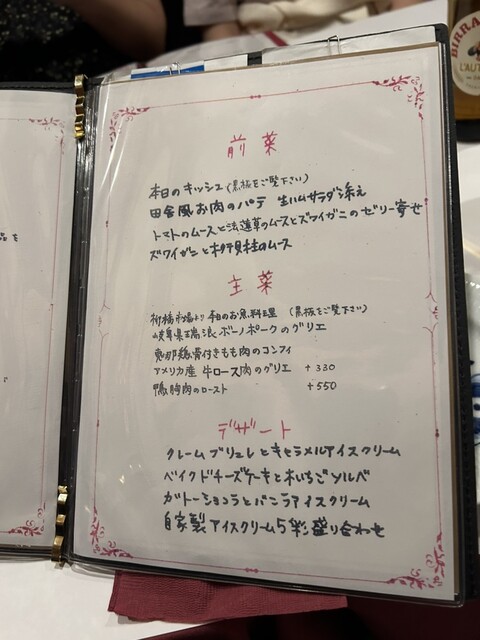 前菜
本日のキッシュ(黒板をご覧下さい)
田舎風お肉のパテ 生ハムサラダ添え
トマトのムースと法蓮草のムースとズワイガニのゼリー寄せ
ズワイガニと帆立貝柱のムース
主菜
柳橋市場より本日のお魚料理 (黒板をご覧下さい)
岐阜県瑞浪ボーノポークのグリエ
恵那鶏骨付きもも肉のコンフィ
アメリカ産 牛ロース肉のグリエ +330
鴨胸肉のロースト +550
デザート
クレームブリュレとキャラメルアイスクリーム
ベイクドチーズケーキと木いちごソルベ
ガトーショコラとバニラアイスクリーム
自家製アイスクリーム5彩盛り合わせ
BIRRA
L'AUT